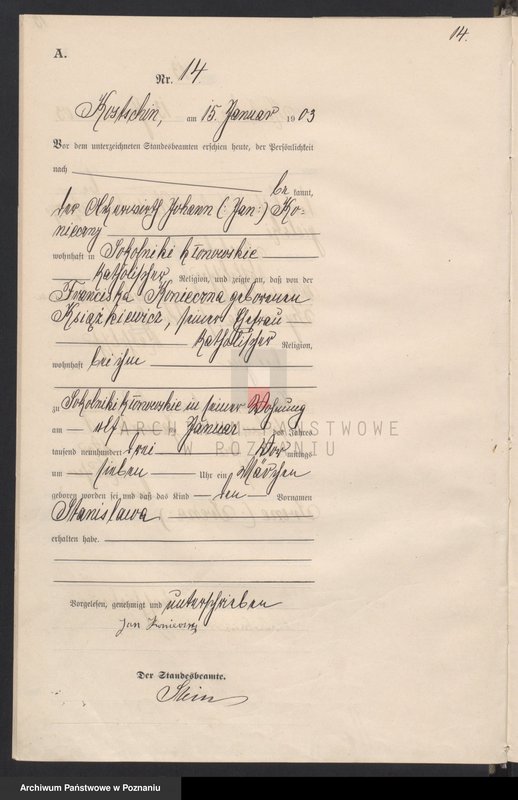 14.
A.
Nr. 14
Kostschin, am 15. Januar 1903
Vor dem unterzeichneten Standesbeamten erschien heute, der Persönlichkeit
nach
be kannt,
der Ackerwirth Johann (: Jan :) Ko-
nieczny
wohnhaft in Sokolniki Kłonowskie
katholischer Religion, und zeigte an, daß von der
Franciska Konieczna geborenen
Książkiewicz, seiner Ehefrau
katholischer Religion,
wohnhaft bei ihm
zu Sokolniki Kłonowskie in seiner Wohnung
am elf ten Januar des Jahres
tausend neunhundert drei Vor mittags
um sieben Uhr ein Mädchen
geboren worden sei, und daß das Kind den Vornamen
Stanislawa
erhalten habe.
Vorgelesen, genehmigt und unterschrieben
Jan Konieczny
Der Standesbeamte.
Stein
ARCHIWUM PAŃSTWOWE
W POZNANIU
Archiwum Państwowe w Poznaniu